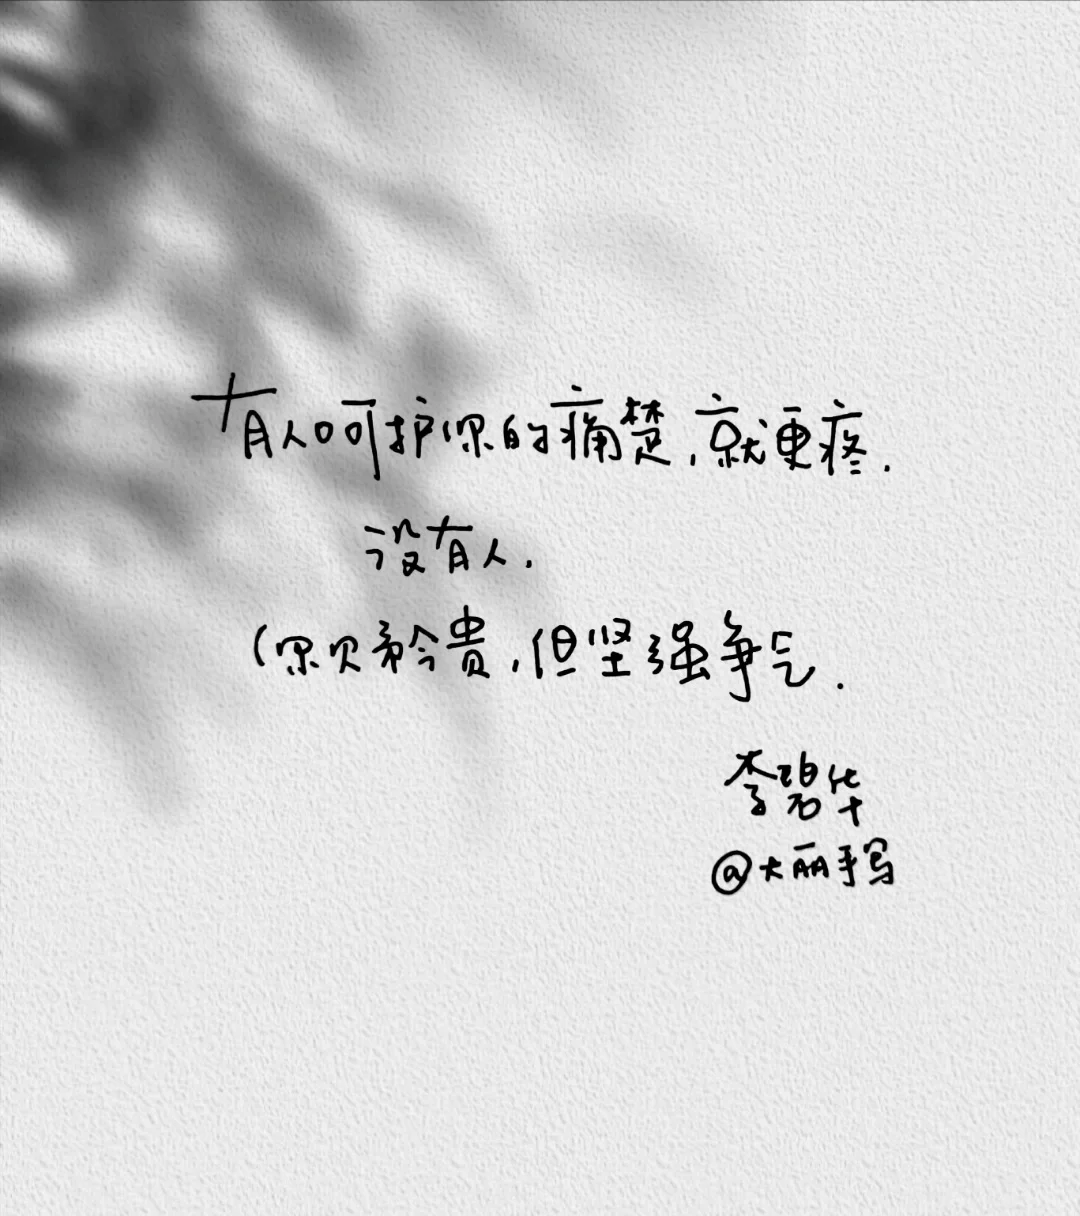 有人呵护你的痛楚，就更疼.
没有人.
你只矜贵，但坚强争气.
李碧华
@大丽手写